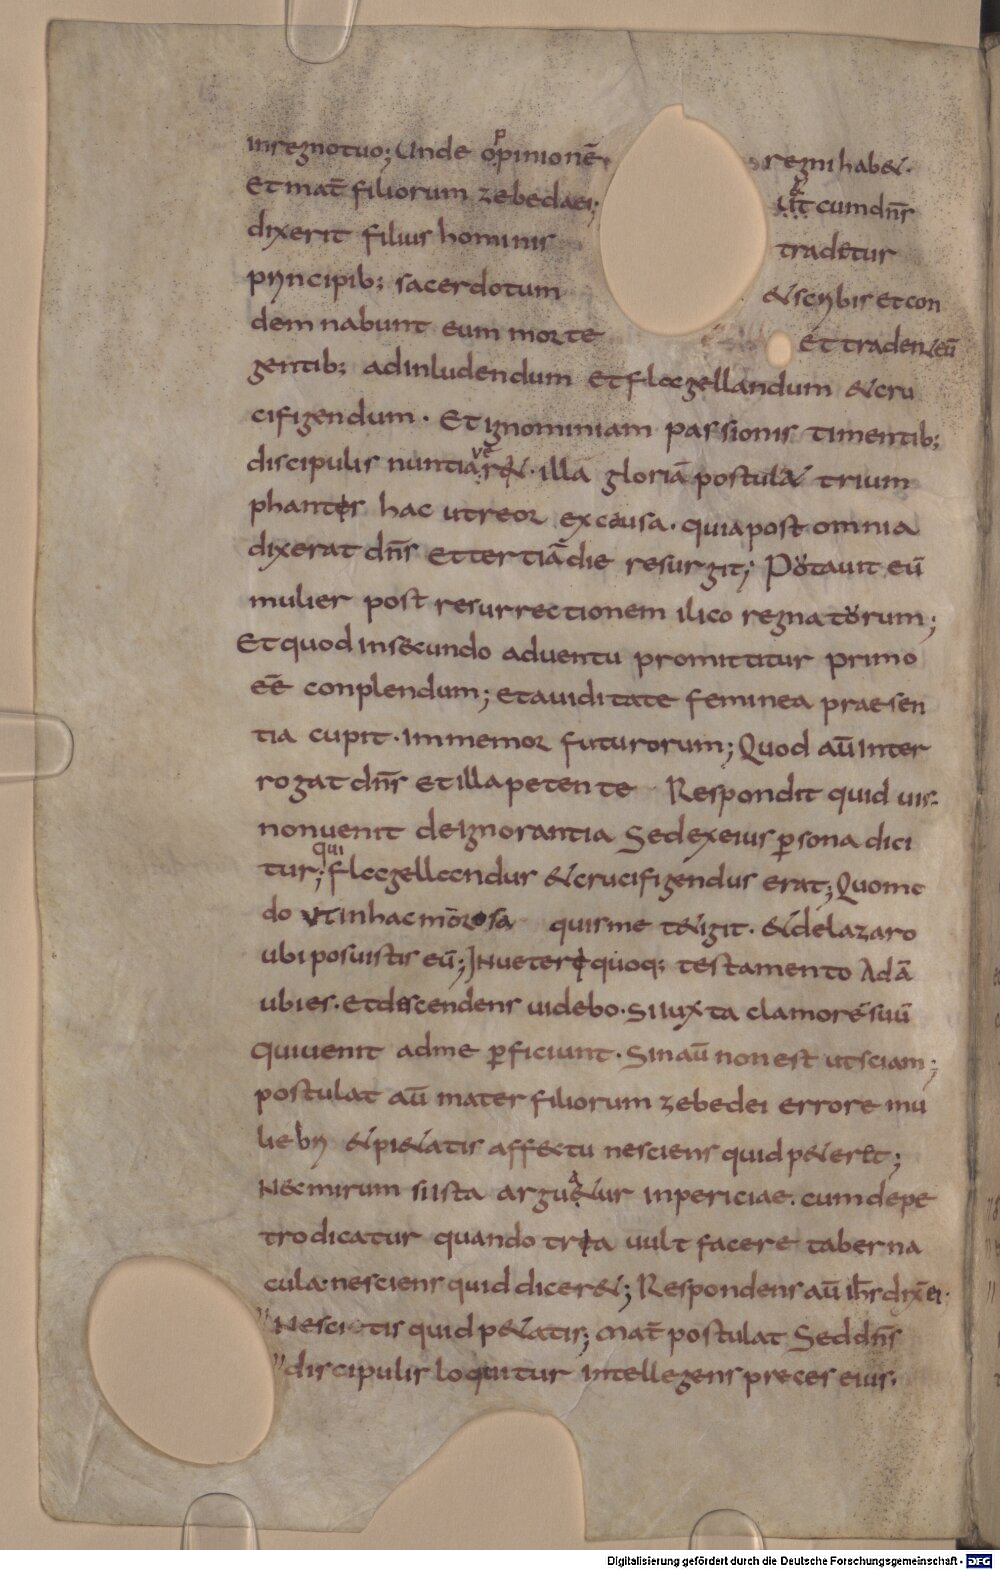 inregnotuo; Unde oppinionē regni hab&.
Et mat̄ filiorum zebedaei; Ut cumdn̄s
dixerit filius hominis tradetur
principib; sacerdotum &scribis et con
demnabunt eum morte Et traden&eū
gentib; adinludendum Et flagellandum &cru
cifigendum. Et ignominiam passionis timentib;
discipulis nuntiar&. illa gloriā postul& trium
phantis hac ut reor ex causa. quia post omnia
dixerat dn̄s Et tertiā die resurgit; Potauit eū
mulier post resurrectionem ilico regnatorum;
Et quod insecundo aduentu promittitur primo
eē conplendum; et auiditate feminea praesen
tia cupit. inmemor futurorum; Quod aū inter
rogat dn̄s et illa petente Respondit quid uis.
non uenit deignorantia Sed exeius p̱sona dici
tur; qui flagellandus &crucifigendus erat; Quomo
do ut inhac quisme t&igit. &delazaro
ubi posuistis eū; In uetere quoq; testamento Adā
ubi es. Et descendens uidebo. Si iuxta clamorē suū
qui uenit adme p̱ficiunt. Sin aū non est ut sciam;
postulat aū mater filiorum zebedei errore mu
liebri &pi&atis affectu nesciens quid p&er&;
Nec mirum si ista argu&ur inpericiae. cum depe
tro dicatur quando tria uult facere taberna
cula. nesciens quid dicer&; Respondens aū ih̄s dix̄ ei.
Nescitis quid p&atis; mat̄ postulat Sed dn̄s
discipulis loquitur intellegens preces eius.
Digitalisierung gefördert durch die Deutsche Forschungsgemeinschaft - DFG